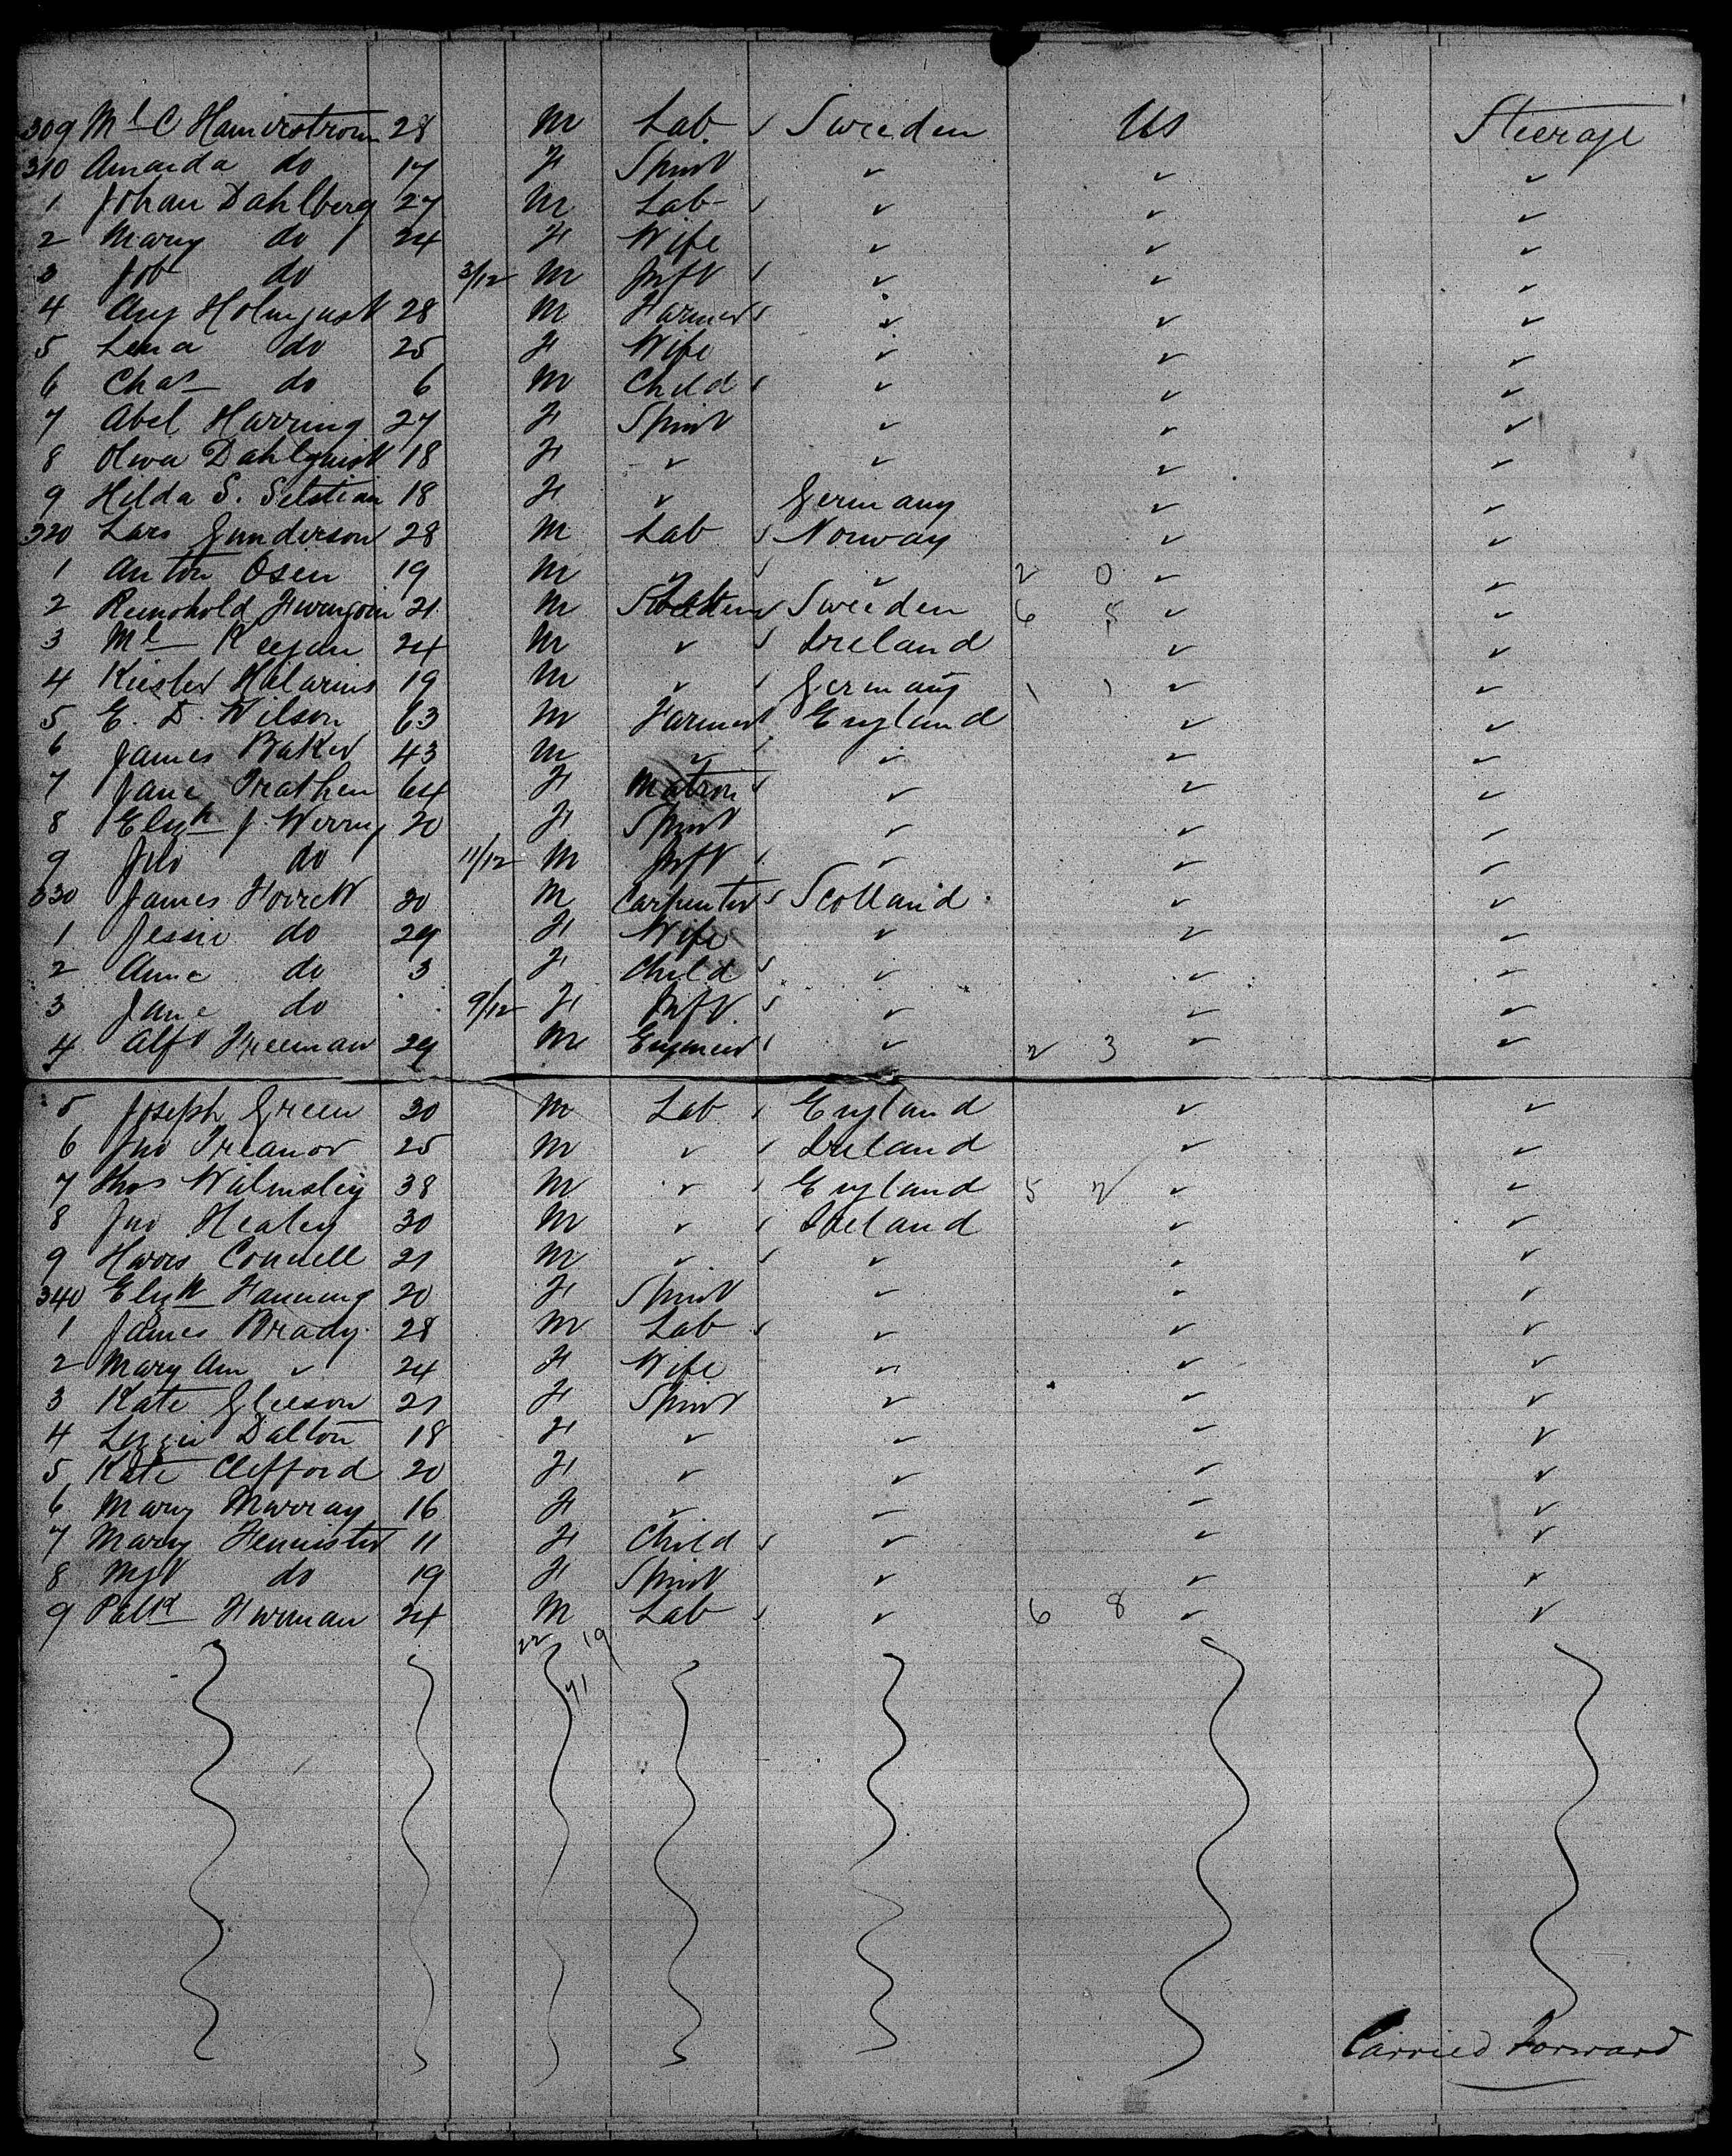 309 Ml C Hamerstrom 28 M Lab Sweeden Us Steerage
310 Amanda do 17 F Spinr ✓ ✓ ✓
1 Johan Dahlberg 27 M Lab ✓ ✓ ✓
2 Mary do 24 F Wife ✓ ✓ ✓
3 Job do 3/12 M Inft ✓ ✓ ✓
4 Aug Holmqust 28 M Farmer ✓ ✓ ✓
5 Lena do 25 F Wife ✓ ✓ ✓
6 Chas do 6 M Child ✓ ✓ ✓
7 Abel Harring 27 F Spinr ✓ ✓ ✓
8 Dahlquist 18 F ✓ ✓ ✓ ✓
9 Hilda S. 18 F ✓ Germany ✓ ✓
320 Lars Gunderson 28 M Lab Norway ✓ ✓
1 Anton Osen 19 M ✓ ✓ 2 0 ✓ ✓
2 21 M Sweeden 6 8 ✓ ✓
3 Ml Keegan 24 M ✓ Ireland ✓ ✓
4 Hilarius 19 M ✓ Germany 1 1 ✓ ✓
5 E. D. Wilson 63 M Farmer England ✓ ✓
6 James Baker 43 M ✓ ✓ ✓ ✓
7 Jane Trathen 64 F Matron ✓ ✓ ✓
8 Elizh J. Werry 20 F Spinr ✓ ✓ ✓
9 Jno do 11/12 M Inft ✓ ✓ ✓
330 James 30 M Carpenter Scotland ✓ ✓
1 Jessie do 29 F Wife ✓ ✓ ✓
2 Anne do 3 F Child ✓ ✓ ✓
3 Jane do 9/12 F Inft ✓ ✓ ✓
4 Alfd Freeman 29 M Engineer ✓ 2 3 ✓ ✓
5 Joseph Green 30 M Lab England ✓ ✓
6 Jno Treanor 25 M ✓ Ireland ✓ ✓
7 Thos Walmsley 38 M ✓ England 5 2 ✓ ✓
8 Jno Healey 30 M ✓ Ireland ✓ ✓
9 Connell 21 M ✓ ✓ ✓ ✓
340 Elizh Fanning 20 F Spinr ✓ ✓ ✓
1 James Brady 28 M Lab ✓ ✓ ✓
2 Mary Ann ✓ 24 F Wife ✓ ✓ ✓
3 Kate Gleeson 21 F Spinr ✓ ✓ ✓
4 Lizzie Dalton 18 F ✓ ✓ ✓ ✓
5 Kate Clifford 20 F ✓ ✓ ✓ ✓
6 Mary Murray 16 F ✓ ✓ ✓ ✓
7 Mary 11 F Child ✓ ✓ ✓
8 Mgt do 19 F Spinr ✓ ✓ ✓
9 Patk 24 M Lab ✓ 6 8 ✓ ✓
22 19
41
Carried Forward